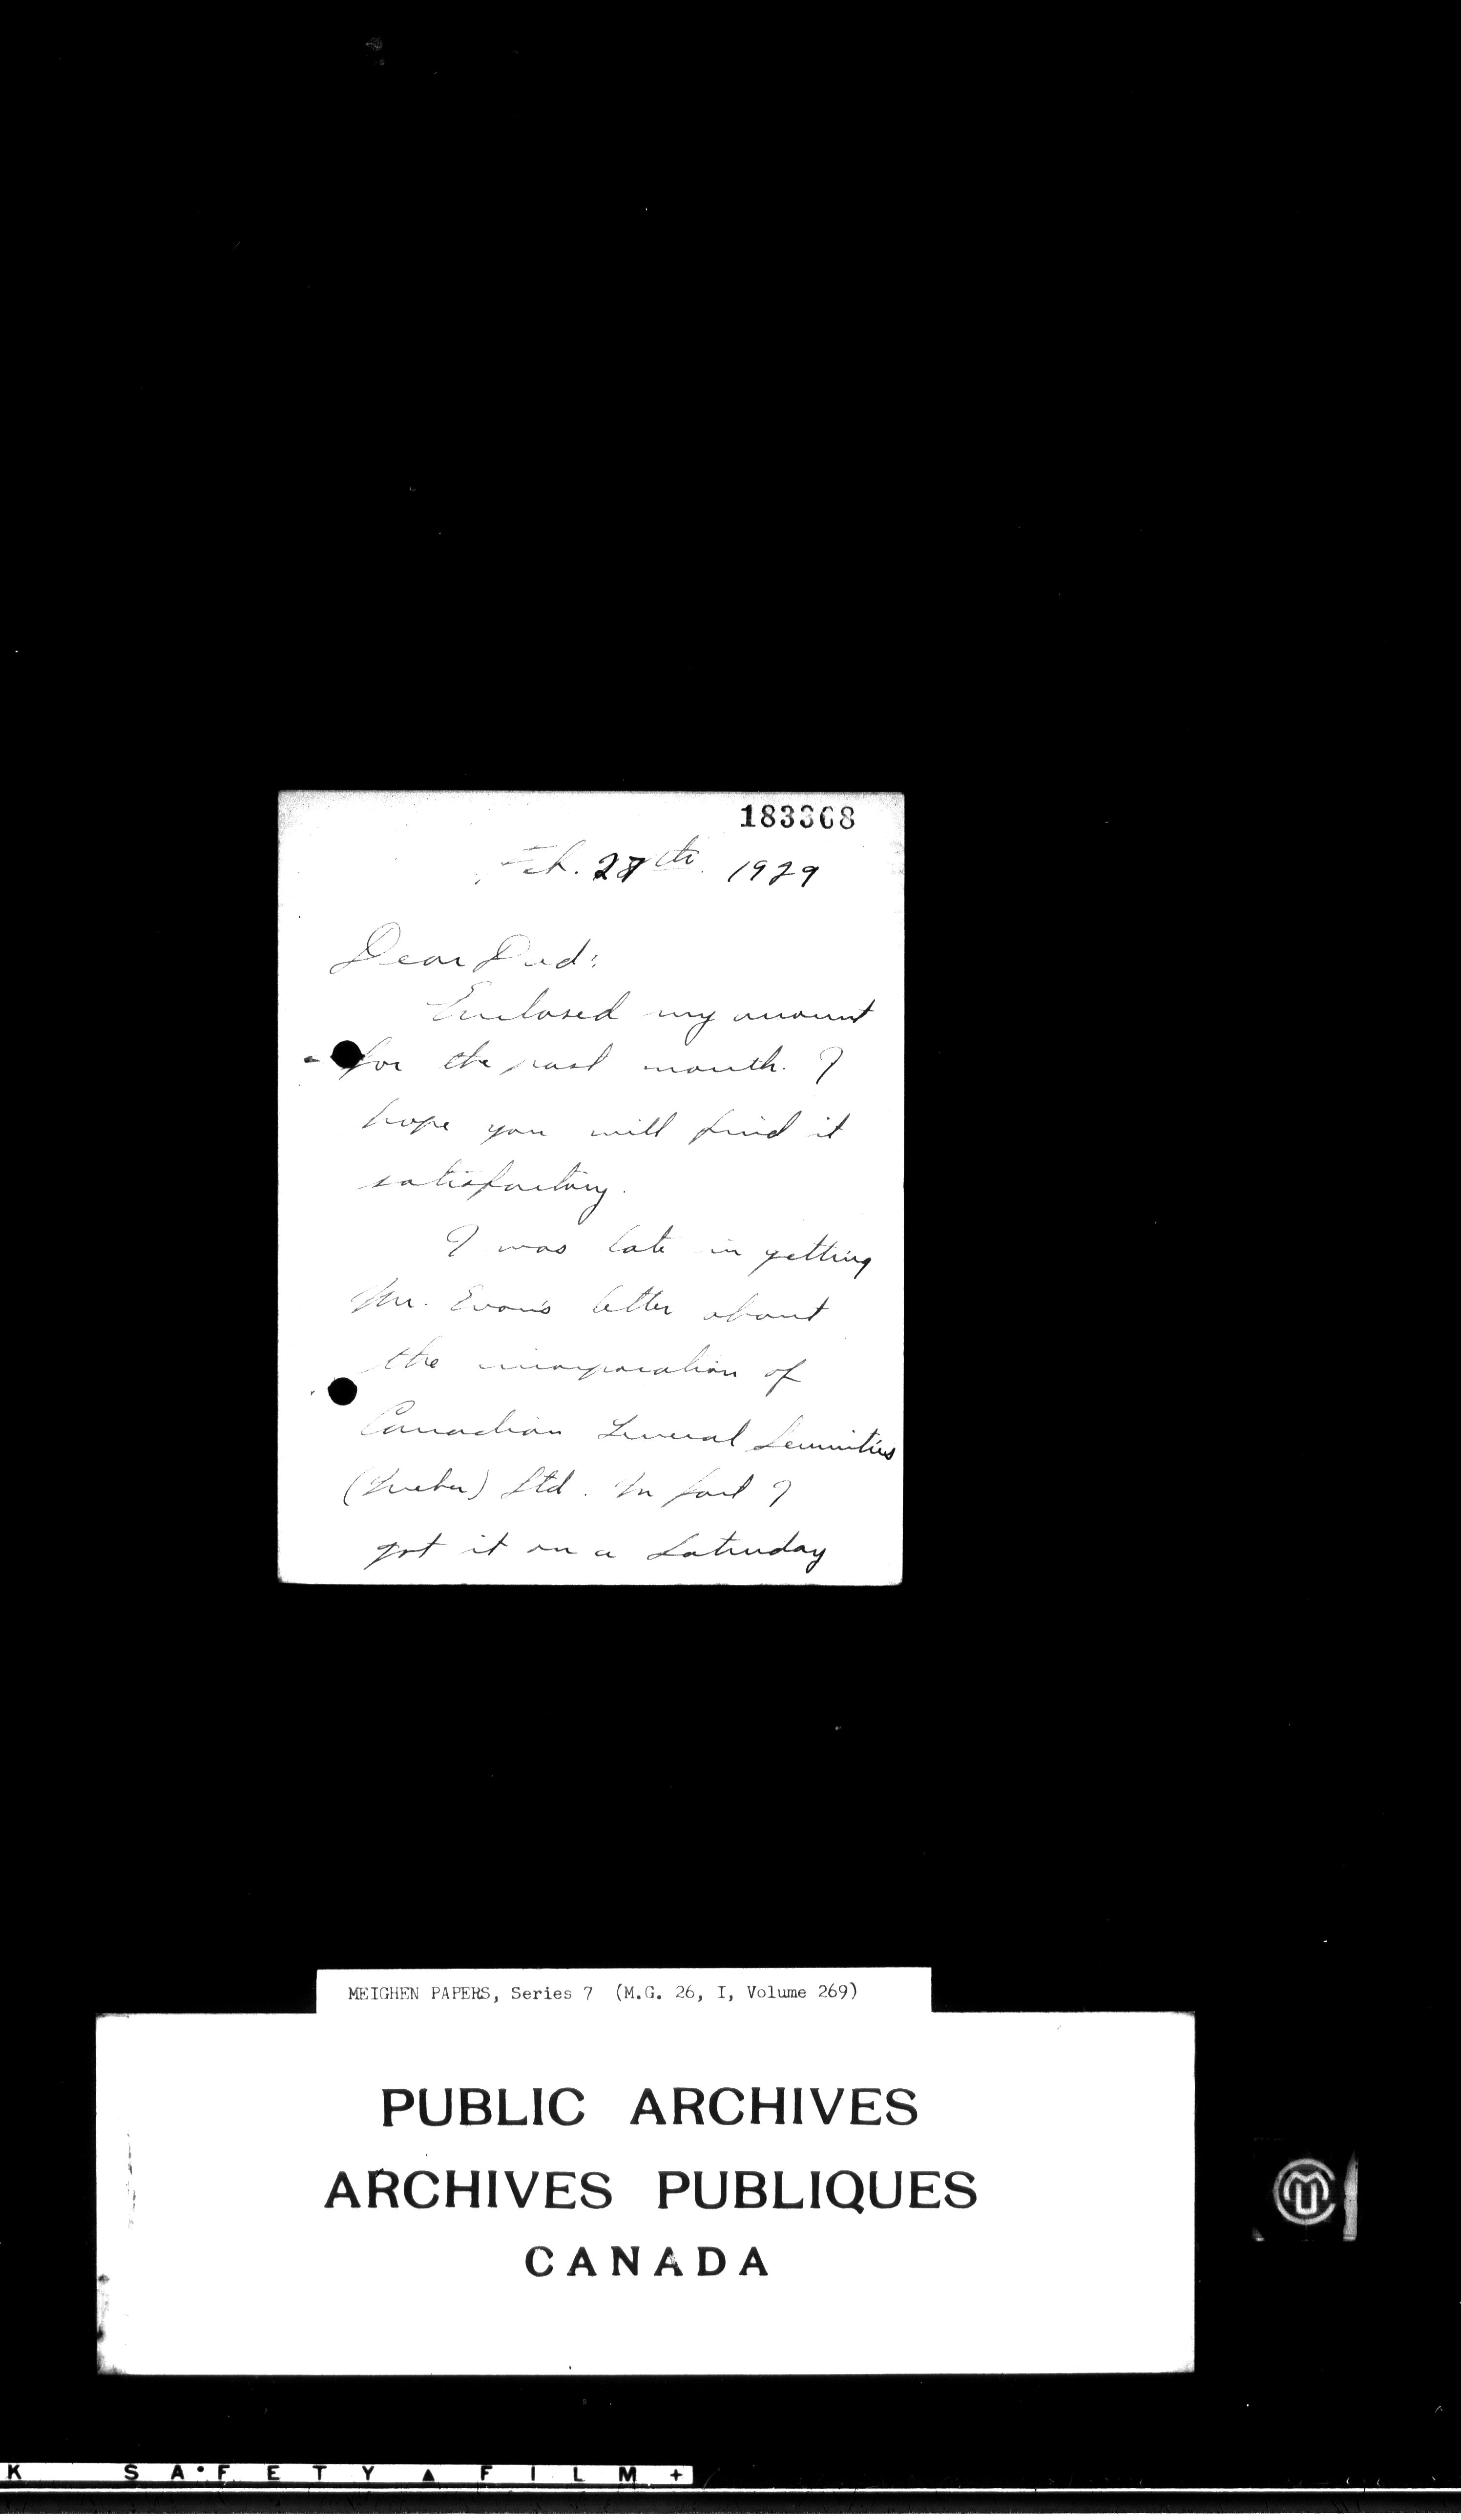 183368
Feb. 28th. 1929
Dear Dad:
Enclosed my account
for the past month. I
hope you will find it
satisfactory.
I was late in getting
Mr. Evan's letter about
the incorporation of
Canadian General Securities
(Quebec) Ltd. In fact I
got it on a Saturday
MEIGHEN PAPERS, Series 7 (M.G. 26, I, Volume 269)
PUBLIC ARCHIVES
ARCHIVES PUBLIQUES
CANADA
K SA•FETY▲FILM+